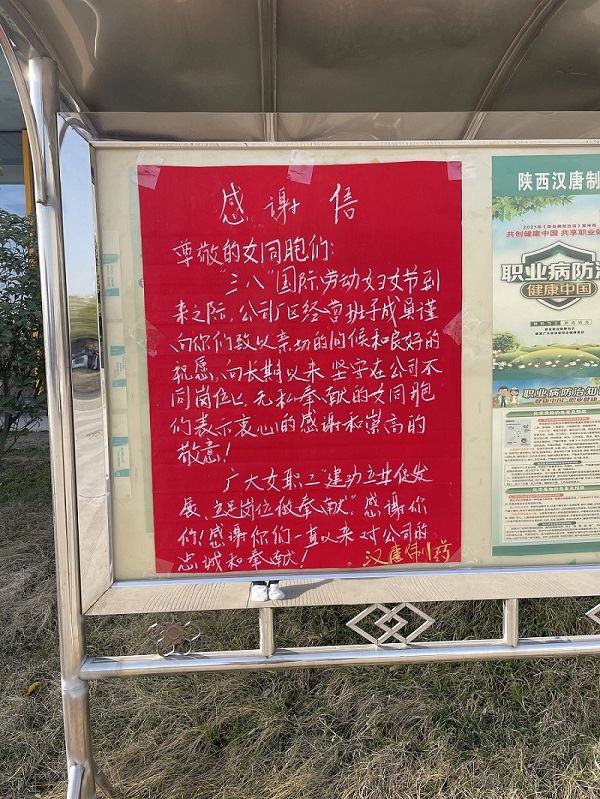 感谢信
尊敬的女同胞们:
"三八"国际劳动妇女节到
来之际,公司厂区经营班子成员谨
向你们致以亲切的问候和良好的
祝愿,向长期以来坚守在公司不
同岗位上,无私奉献的女同胞
们表示衷心的感谢和崇高的
敬意!
广大女职工"建功立业促发
展、立足岗位做奉献",感谢你
们!感谢你们一直以来对公司的
忠诚和奉献!
汉唐制药
陕西汉唐制
共创健康中国 共享职业健
职业病防治
健康中国
职业病防治知